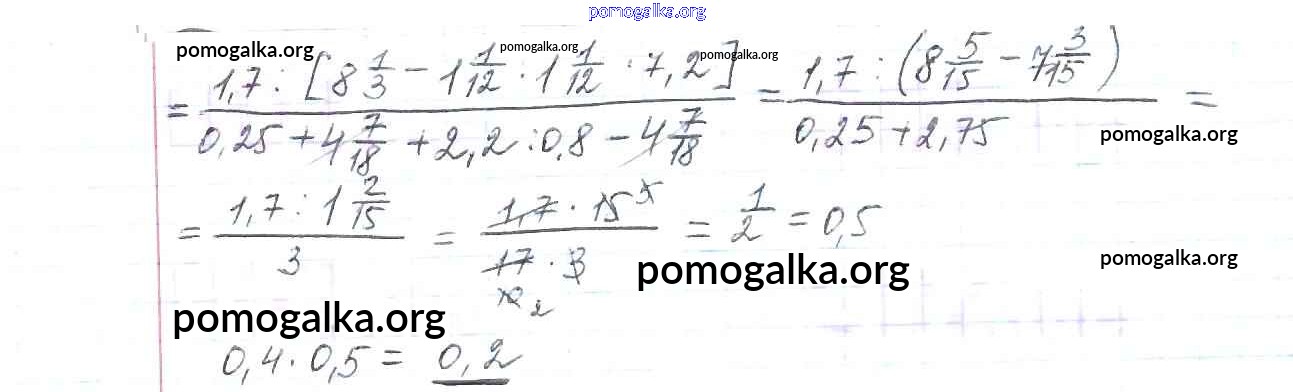 pomogalka.org
pomogalka.org pomogalka.org pomogalka.org
= 1,7 : [8 1/3 − 1 1/12 · 1 1/12 · 7,2] / 0,25 + 4 7/18 + 2,2 : 0,8 − 4 7/18 = 1,7 : (8 5/15 − 7 3/15) / 0,25 + 2,75 =
pomogalka.org
= 1,7 : 1 2/15 / 3 = 1,7 · 15 5 / 17 · 3 10 2 = 1/2 = 0,5
pomogalka.org pomogalka.org
pomogalka.org
0,4 · 0,5 = 0,2